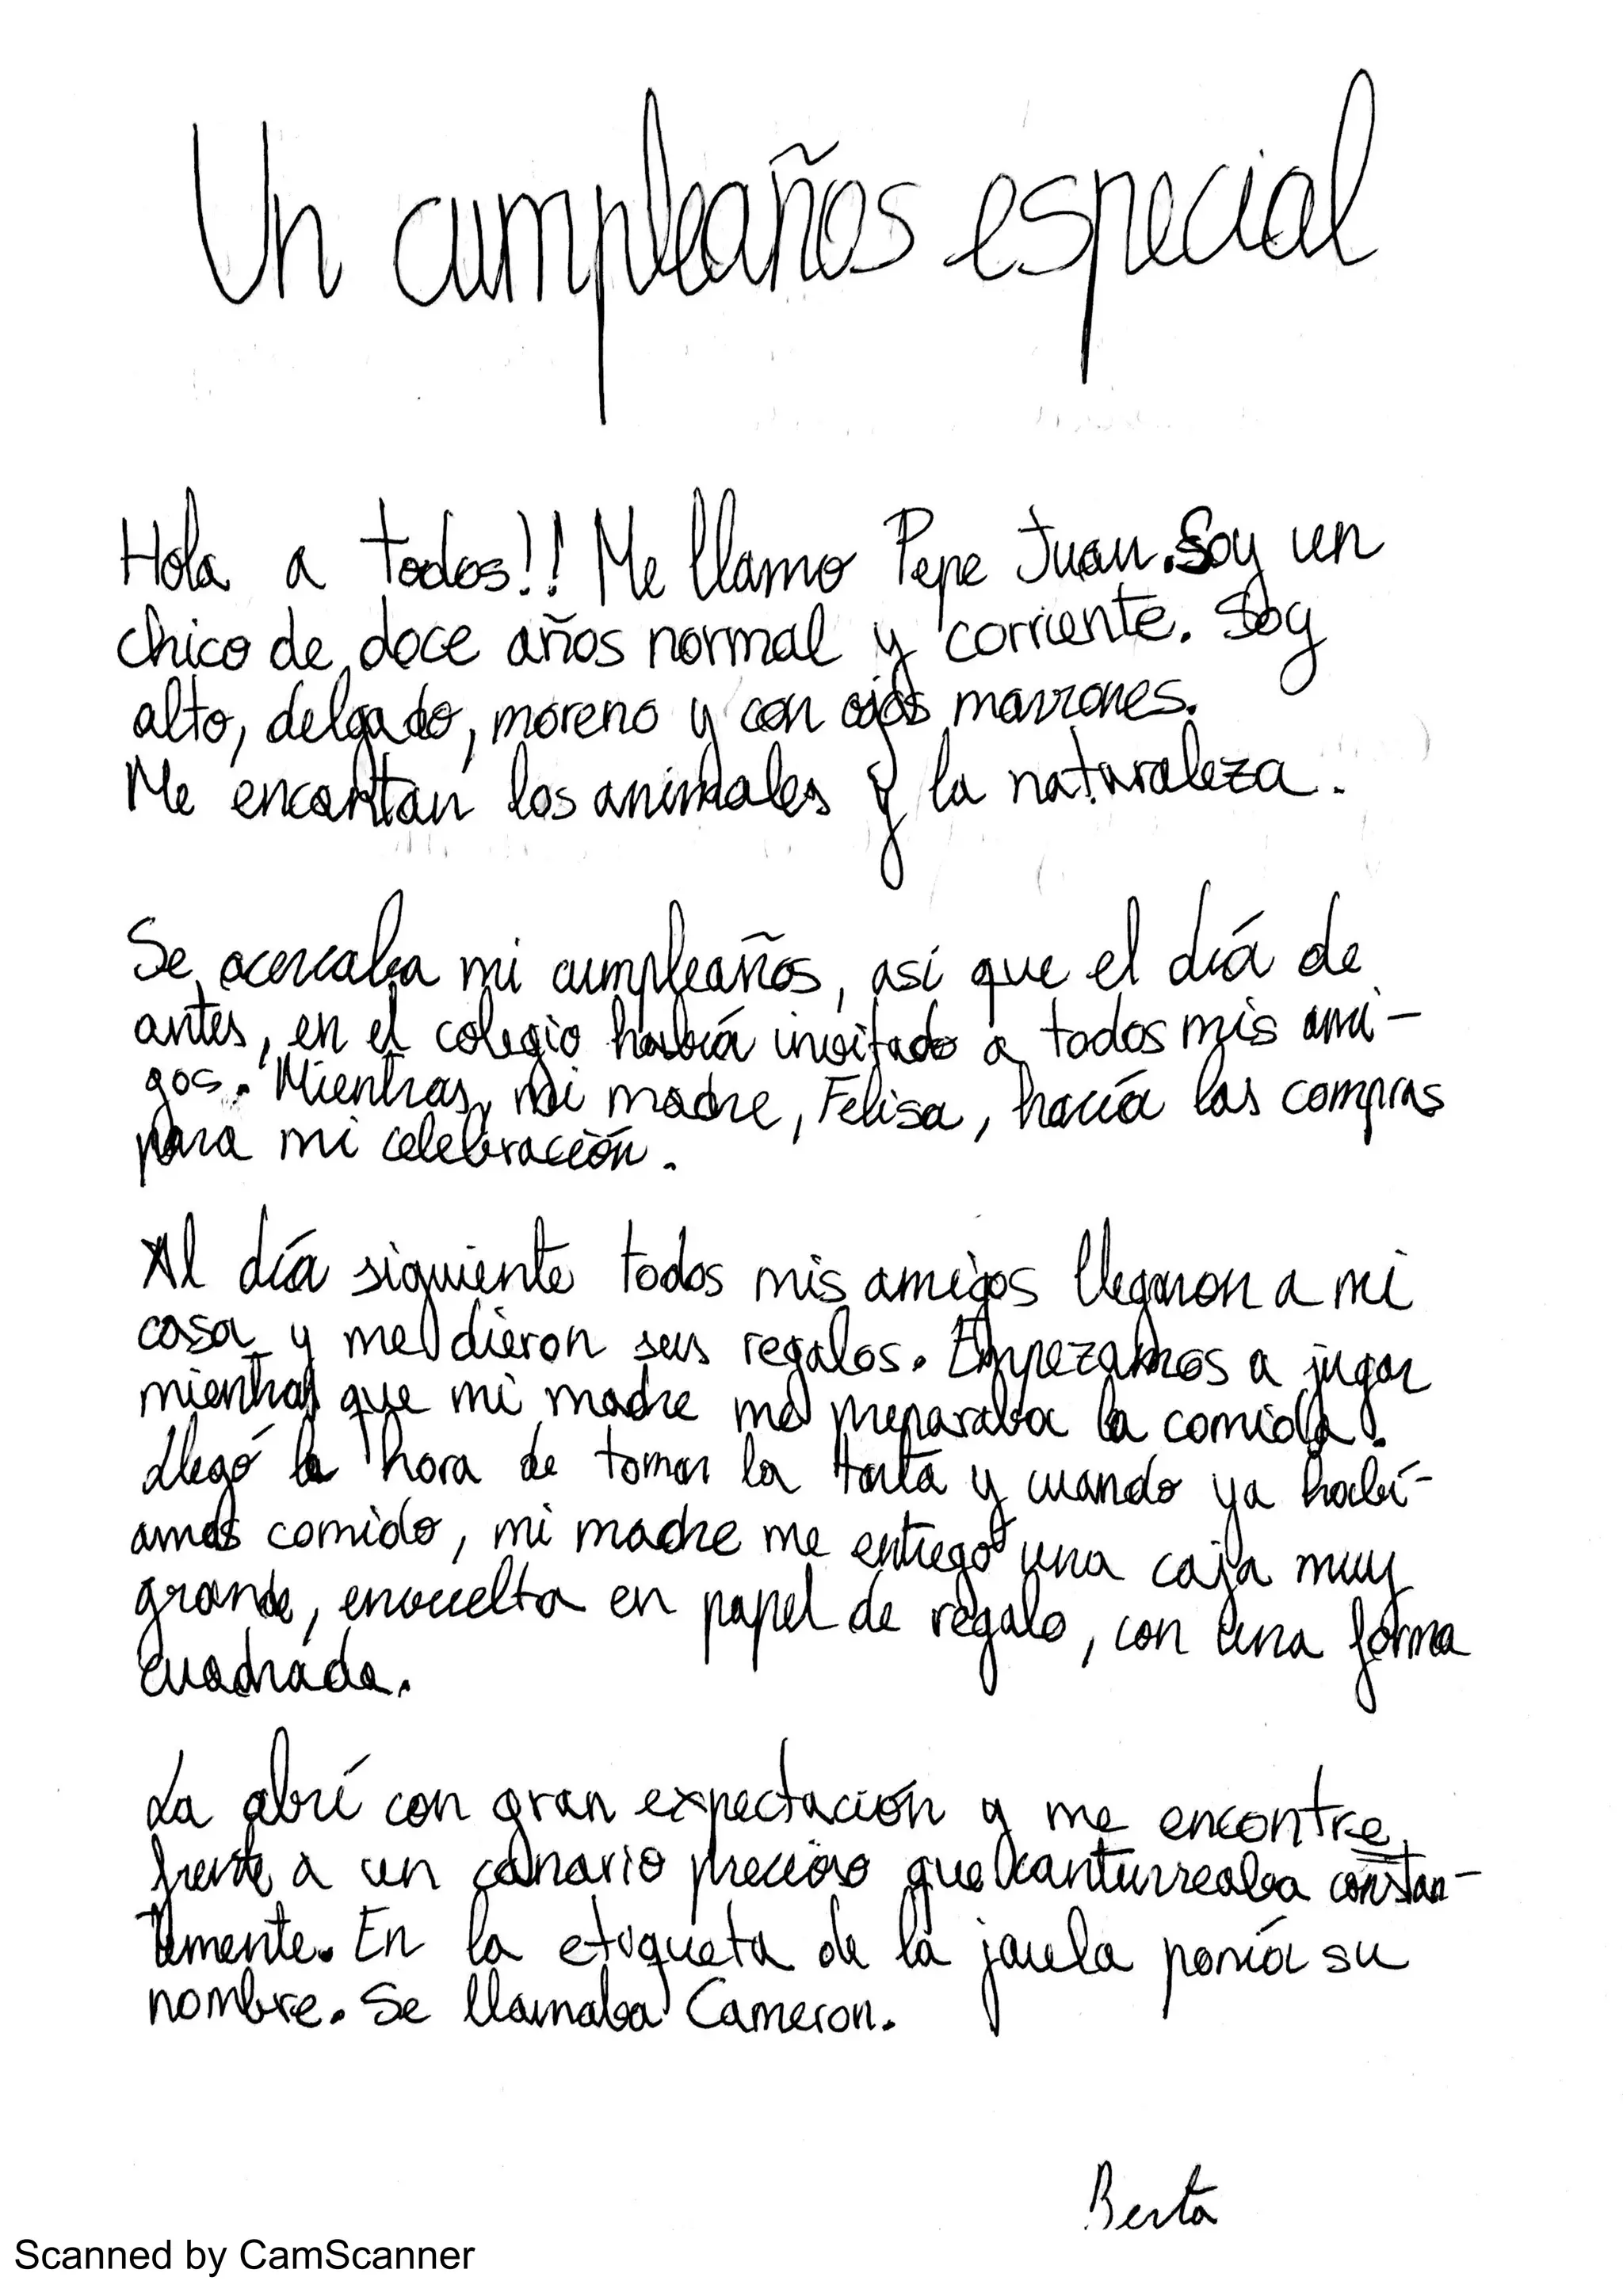 Un cumpleaños especial
Hola a todos!! Me llamo Pepe Juan. Soy un
chico de doce años normal y corriente. Soy
alto, delgado, moreno y con ojos marrones.
Me encantan los animales y la naturaleza.
Se acercaba mi cumpleaños, así que el día de
antes, en el colegio había invitado a todos mis ami-
gos. Mientras, mi madre, Felisa, hacía las compras
para mi celebración.
Al día siguiente todos mis amigos llegaron a mi
casa y me dieron sus regalos. Empezamos a jugar
mientras que mi madre me preparaba la comida.
Llegó la hora de tomar la tarta y cuando ya habí-
amos comido, mi madre me entregó una caja muy
grande, envuelta en papel de regalo, con una forma
cuadrada.
La abrí con gran expectación y me encontre
frente a un canario precioso que canturreaba constan-
temente. En la etiqueta de la jaula ponía su
nombre. Se llamaba Cameron.
Berta
Scanned by CamScanner